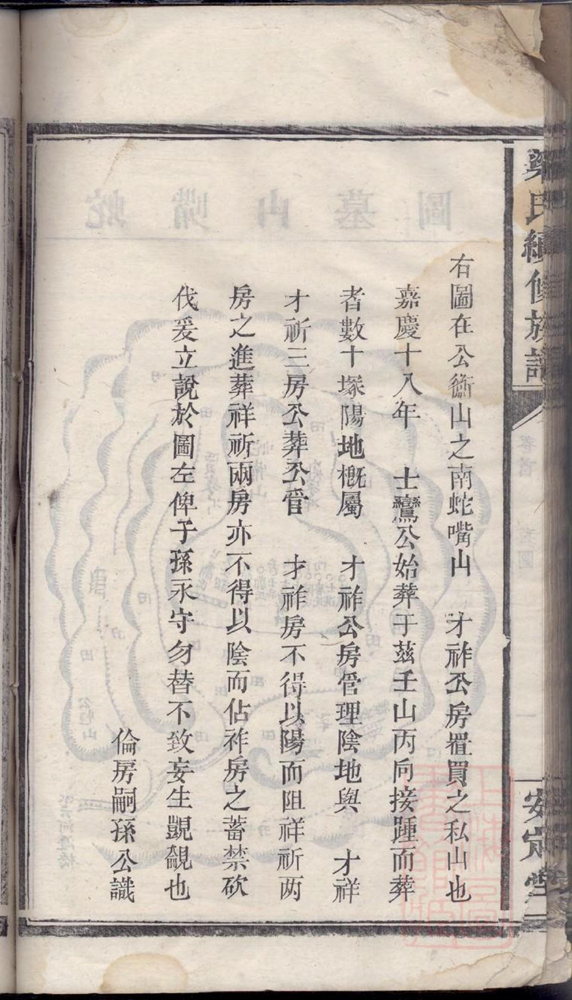 梁氏續修族譜
安定堂
右圖在公衡山之南蛇嘴山 才祚公房置買之私山也
嘉慶十八年 士鸞公始葬于茲壬山丙向接踵而葬
者數十塚陽地概屬 才祚公房管理陰地與 才祥
才祈三房公葬公管 才祚房不得以陽而阻祥祈两
房之進葬祥祈兩房亦不得以陰而佔祚房之蓄禁砍
伐爰立說於圖左俾子孫永守勿替不致妄生覬覦也
倫房嗣孫公識
蛇嘴山墓圖